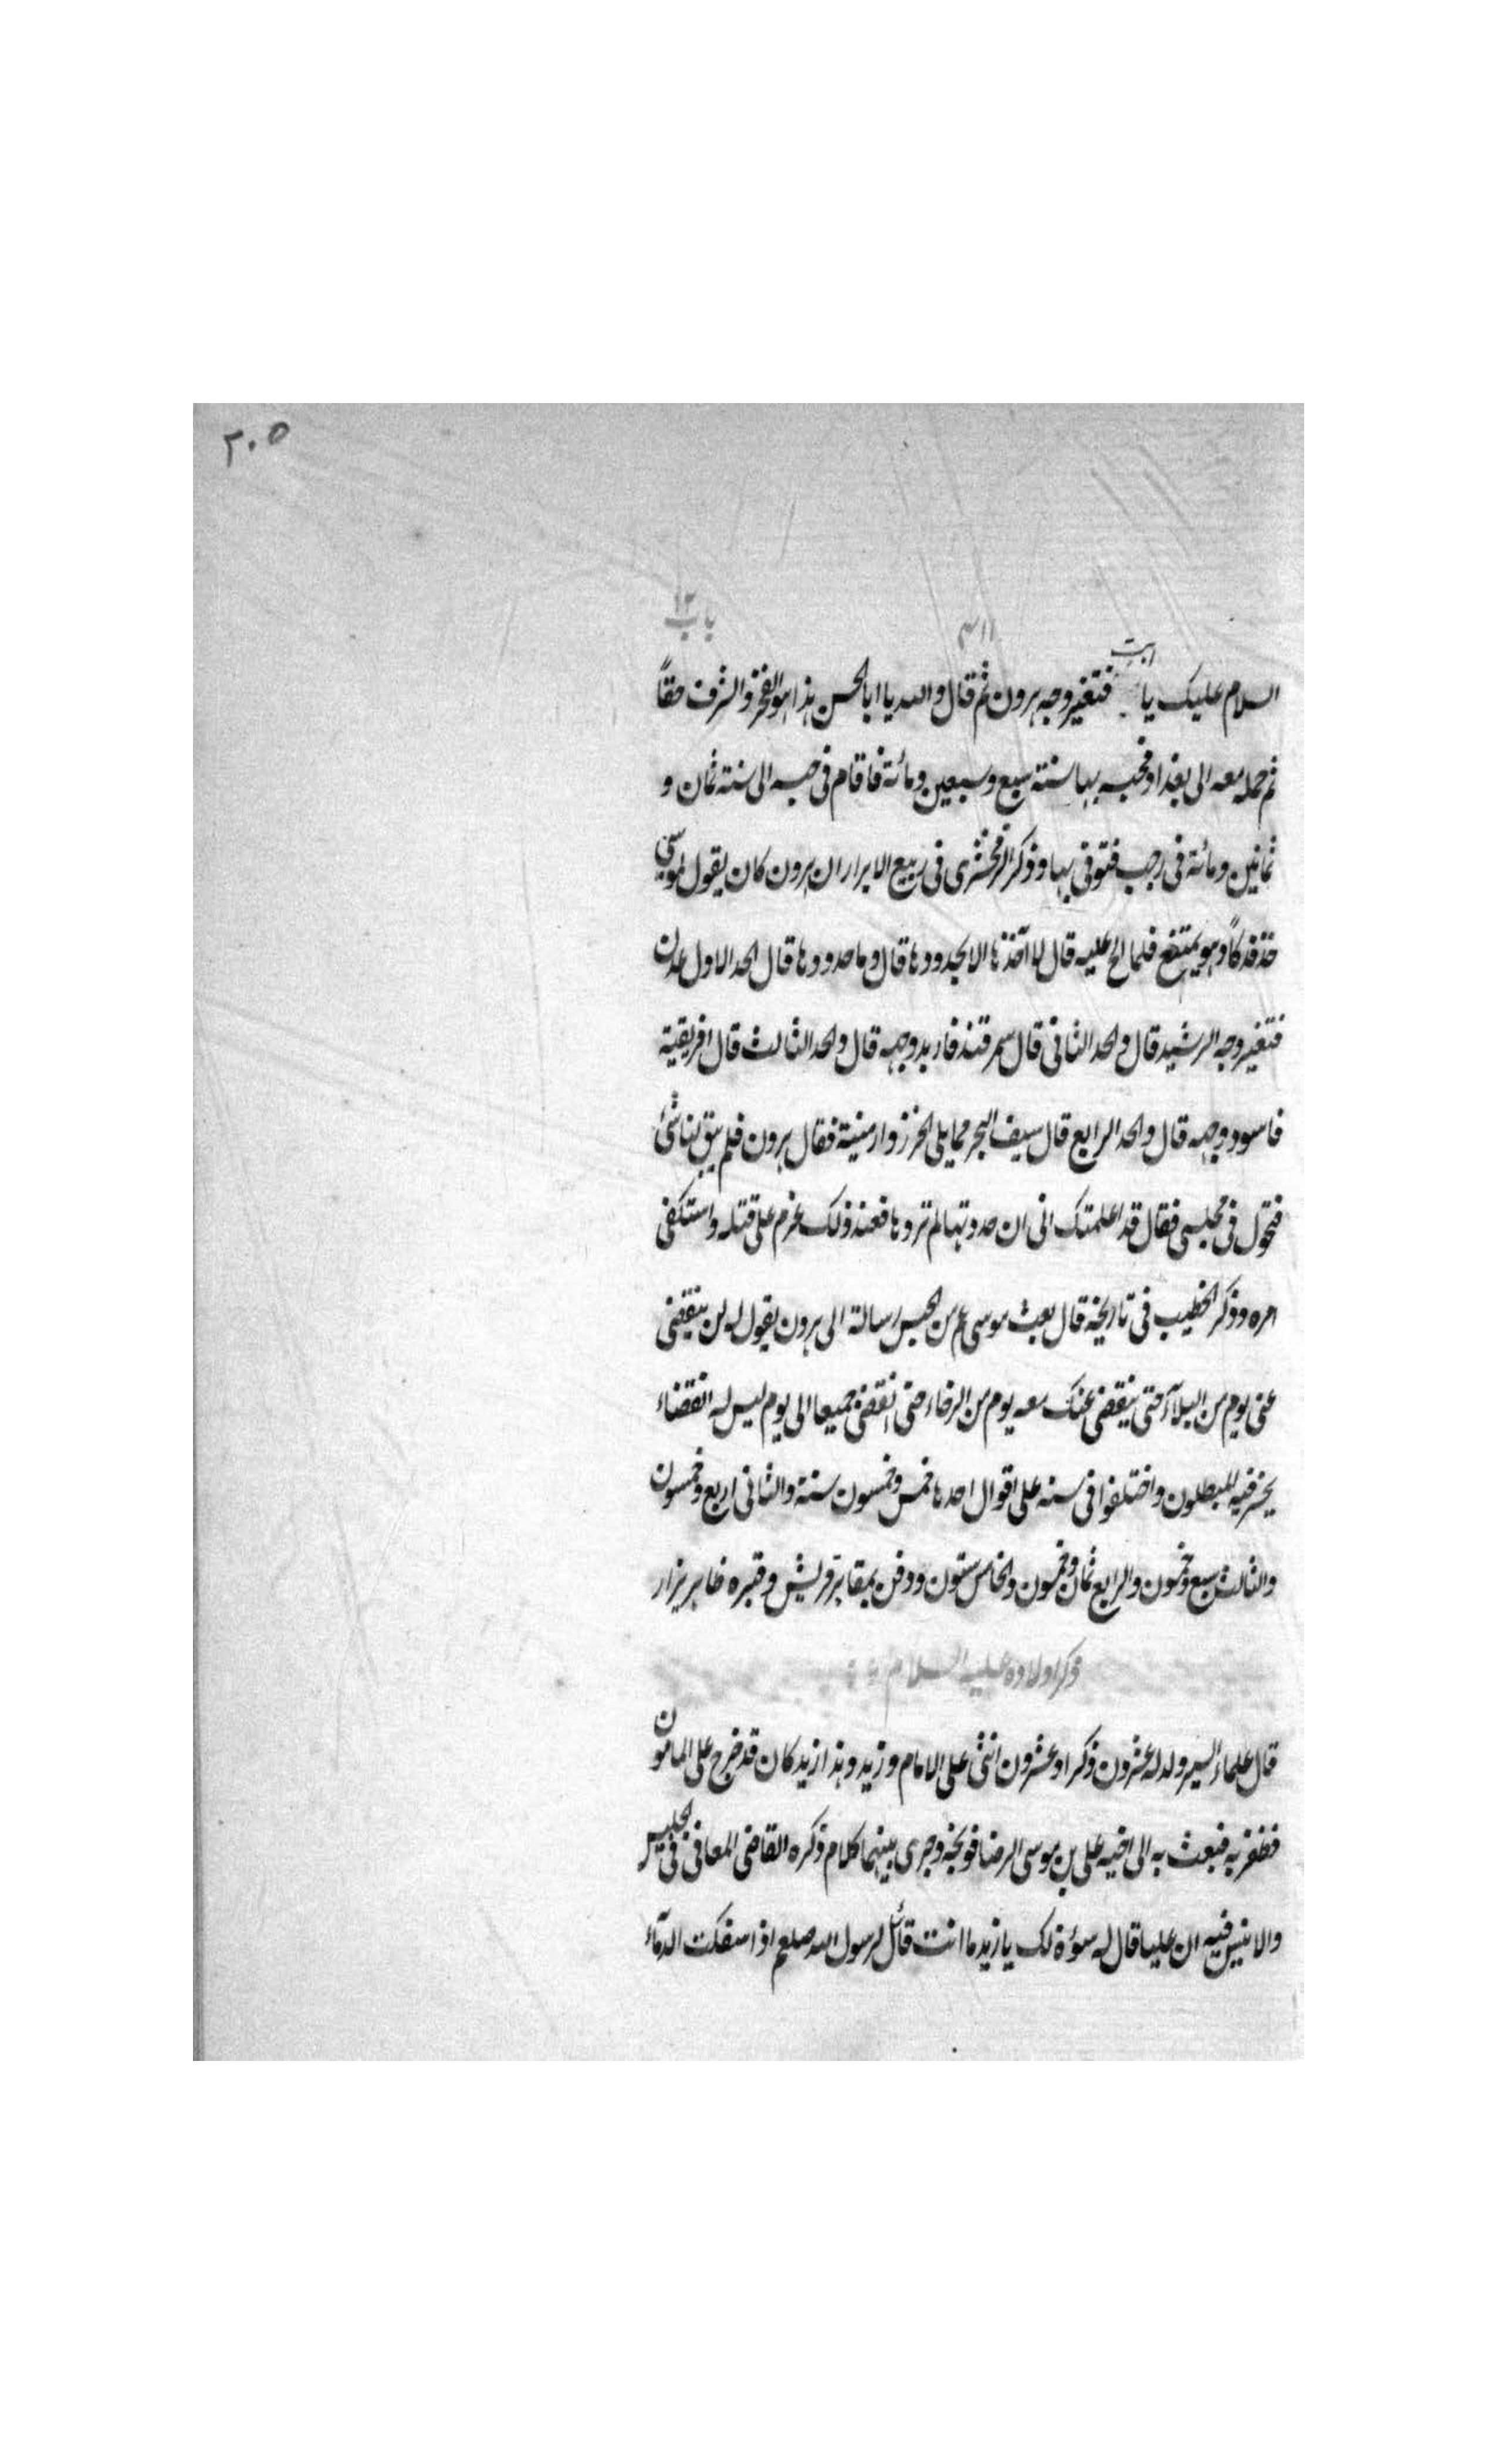 ٢٠٥
باب ١٢
٣١١
السلام عليك يا ابت فتغير وجه هرون ثم قال والله يا ابا الحسن هذا هو الفخر والشرف حقاً
ثم حمله معه الى بغداد فحبسه بها سنة سبع وسبعين ومائة فاقام فى حبسه الى سنة ثمان و
ثمانين ومائة فى رجب فتوفى بها وذكر الزمخشرى فى ربيع الابرار ان هرون كان يقول لموسى
خذ فدكاً وهو يمتنع فلما الح عليه قال لا آخذها الا بحدودها قال وما حدودها قال الحد الاول عدن
فتغير وجه الرشيد قال والحد الثانى قال سمرقند فاربد وجهه قال والحد الثالث قال افريقية
فاسود وجهه قال والحد الرابع قال سيف البحر مما يلى الخزر وارمنية فقال هرون فلم يبق لنا شئ
فتحول فى مجلسى فقال قد اعلمتك انى ان حددتها لم تردها فعند ذلك عزم على قتله واستكفى
امره وذكر الخطيب فى تاريخه قال بعث موسى ع من الحبس رسالة الى هرون يقول له لن ينقضى
عنى يوم من البلآء حتى ينقضى عنك معه يوم من الرخاء حتى انقضى جميعا الى يوم ليس له انقضاء
يخسر فيه المبطلون واختلفوا فى سنه على اقوال احدها خمس وخمسون سنة والثانى اربع وخمسون
والثالث سبع وخمسون والرابع ثمان وخمسون والخامس ستون ودفن بمقابر قريش وقبره ظاهر يزار
ذكر اولاده عليه السلام
قال علماء السير ولد له عشرون ذكرا وعشرون انثى على الامام وزيد وهذا زيد كان قد خرج على المامون
فظفر به فبعث به الى اخيه على بن موسى الرضا فوبخه وجرى بينهما كلام ذكره القاضى المعافى فى الجليس
والانيس فيه ان عليا قال له سوءة لك يا زيد ما انت قائل لرسول الله صلعم اذ اسفكت الدمآء